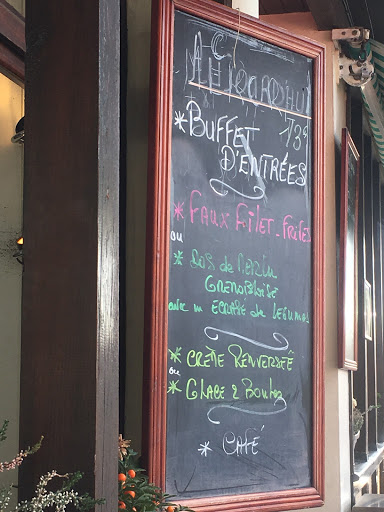 AUJOURD'HUI
* BUFFET
D'ENTRÉES
* FAUX FILET - FRITES
ou
* Dos de Merlu
GRENOBLOISE
avec un ECRASÉ de LÉGUMES
* CRÈME RENVERSÉE
ou
* GLACE 2 BOULES
* CAFÉ